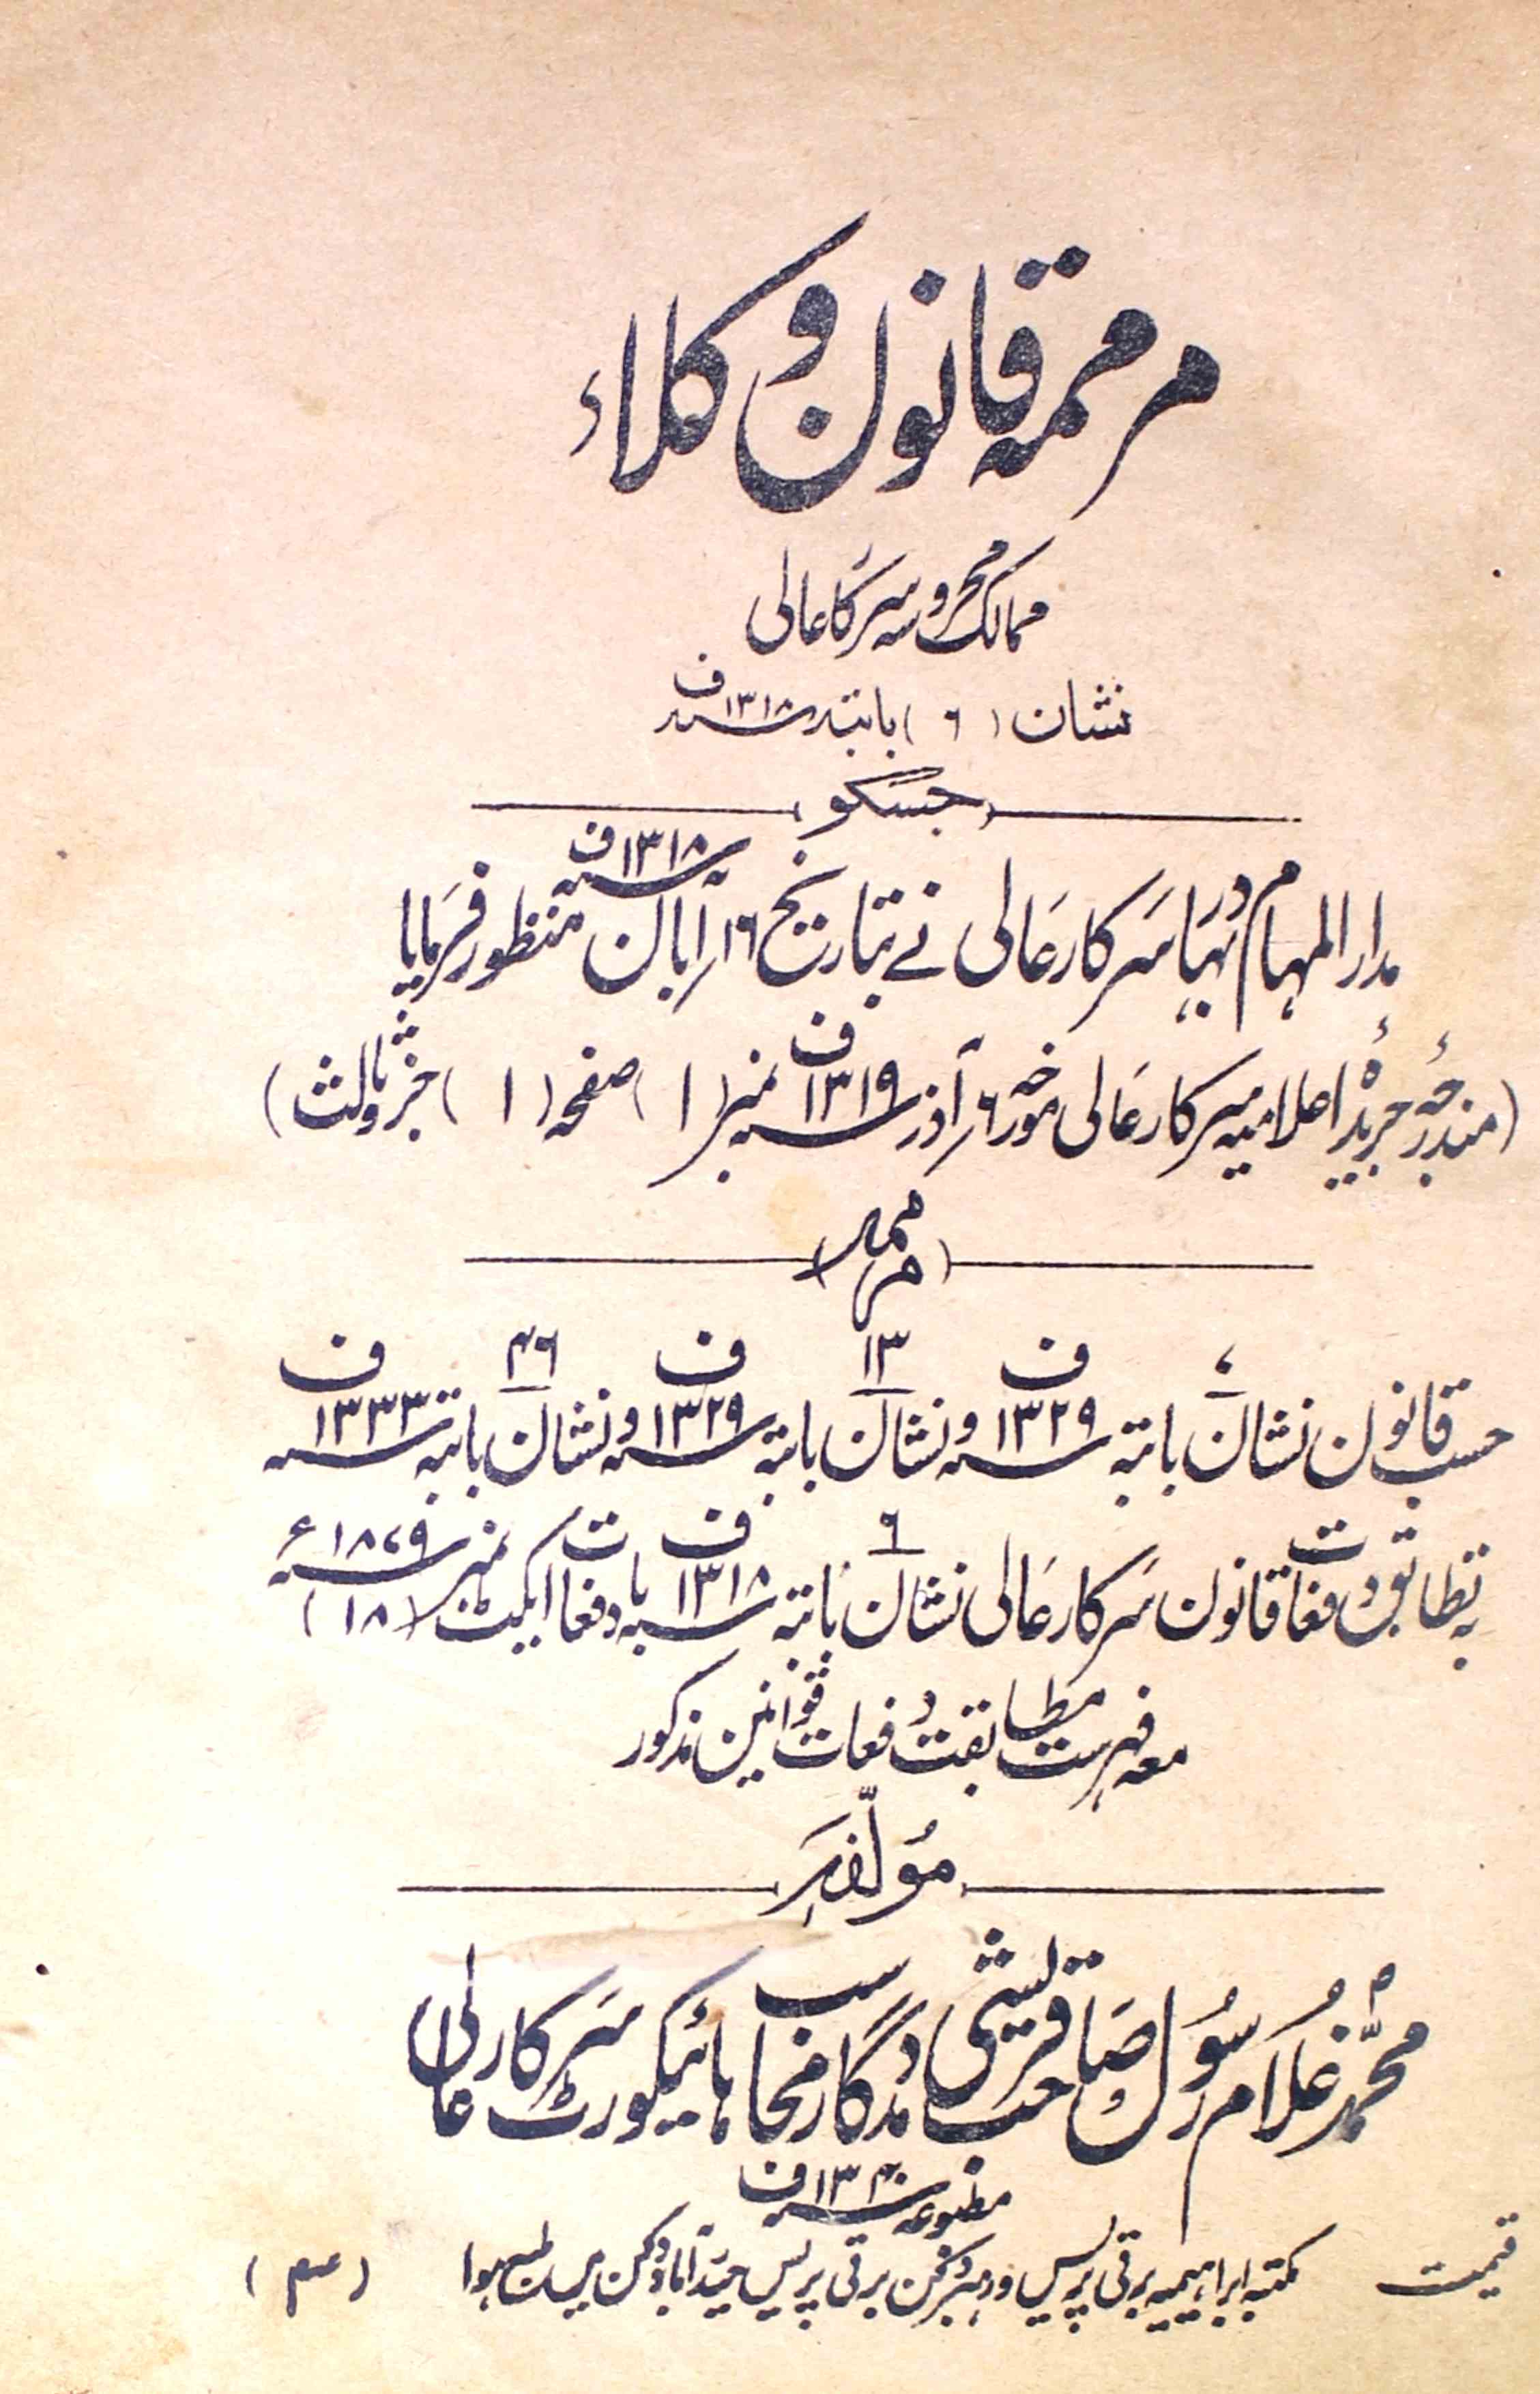 مرممہ قانون وکلاء
ممالک محروسہ سرکار عالی
نشان (٦) بابتہ سنہ ١٣١٨ ف
(جسکو)
مدار المہام بہادر سرکار عالی نے بتاریخ ١٦ر آبان سنہ ١٣١٨ ف منظور فرمایا
(مندرجۂ جریدۂ اعلامیہ سرکار عالی مورخہ ٦ر آذر سنہ ١٣١٩ ف نمبر (١) صفحہ (١) جزو ثالث)
(مرممہ)
حسب قانون نشان ٧ بابتہ سنہ ١٣٢٩ ف و نشان ١٣ بابتہ سنہ ١٣٢٩ ف و نشان ٤٦ بابتہ سنہ ١٣٣٣ ف
بہ تطابق دفعات قانون سرکار عالی نشان ٦ بابتہ سنہ ١٣١٨ ف با دفعات ایکٹ نمبر (١٨) سنہ ١٨٧٩ ء
معہ فہرست مطابقت دفعات قوانین مذکور
مؤلفہ
محمد غلام رسول صاحب قریشی مددگار محاسب ہائیکورٹ سرکار عالی
مطبوعہ سنہ ١٣٤٠ ف
قیمت مکتبہ ابراہیمیہ برقی پریس و رہبر دکن برقی پریس حیدرآباد دکن میں طبع ہوا